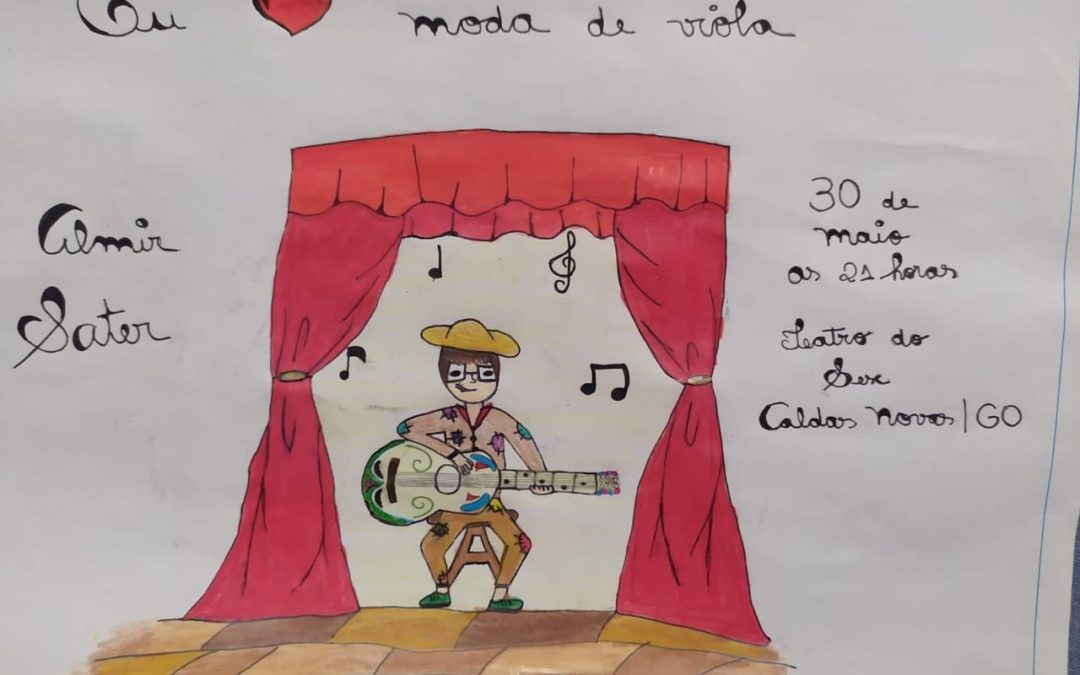 Eu moda de viola
Almir
Sater
30 de
maio
as 21 horas
Teatro do
Sesc
Caldas Novas | GO